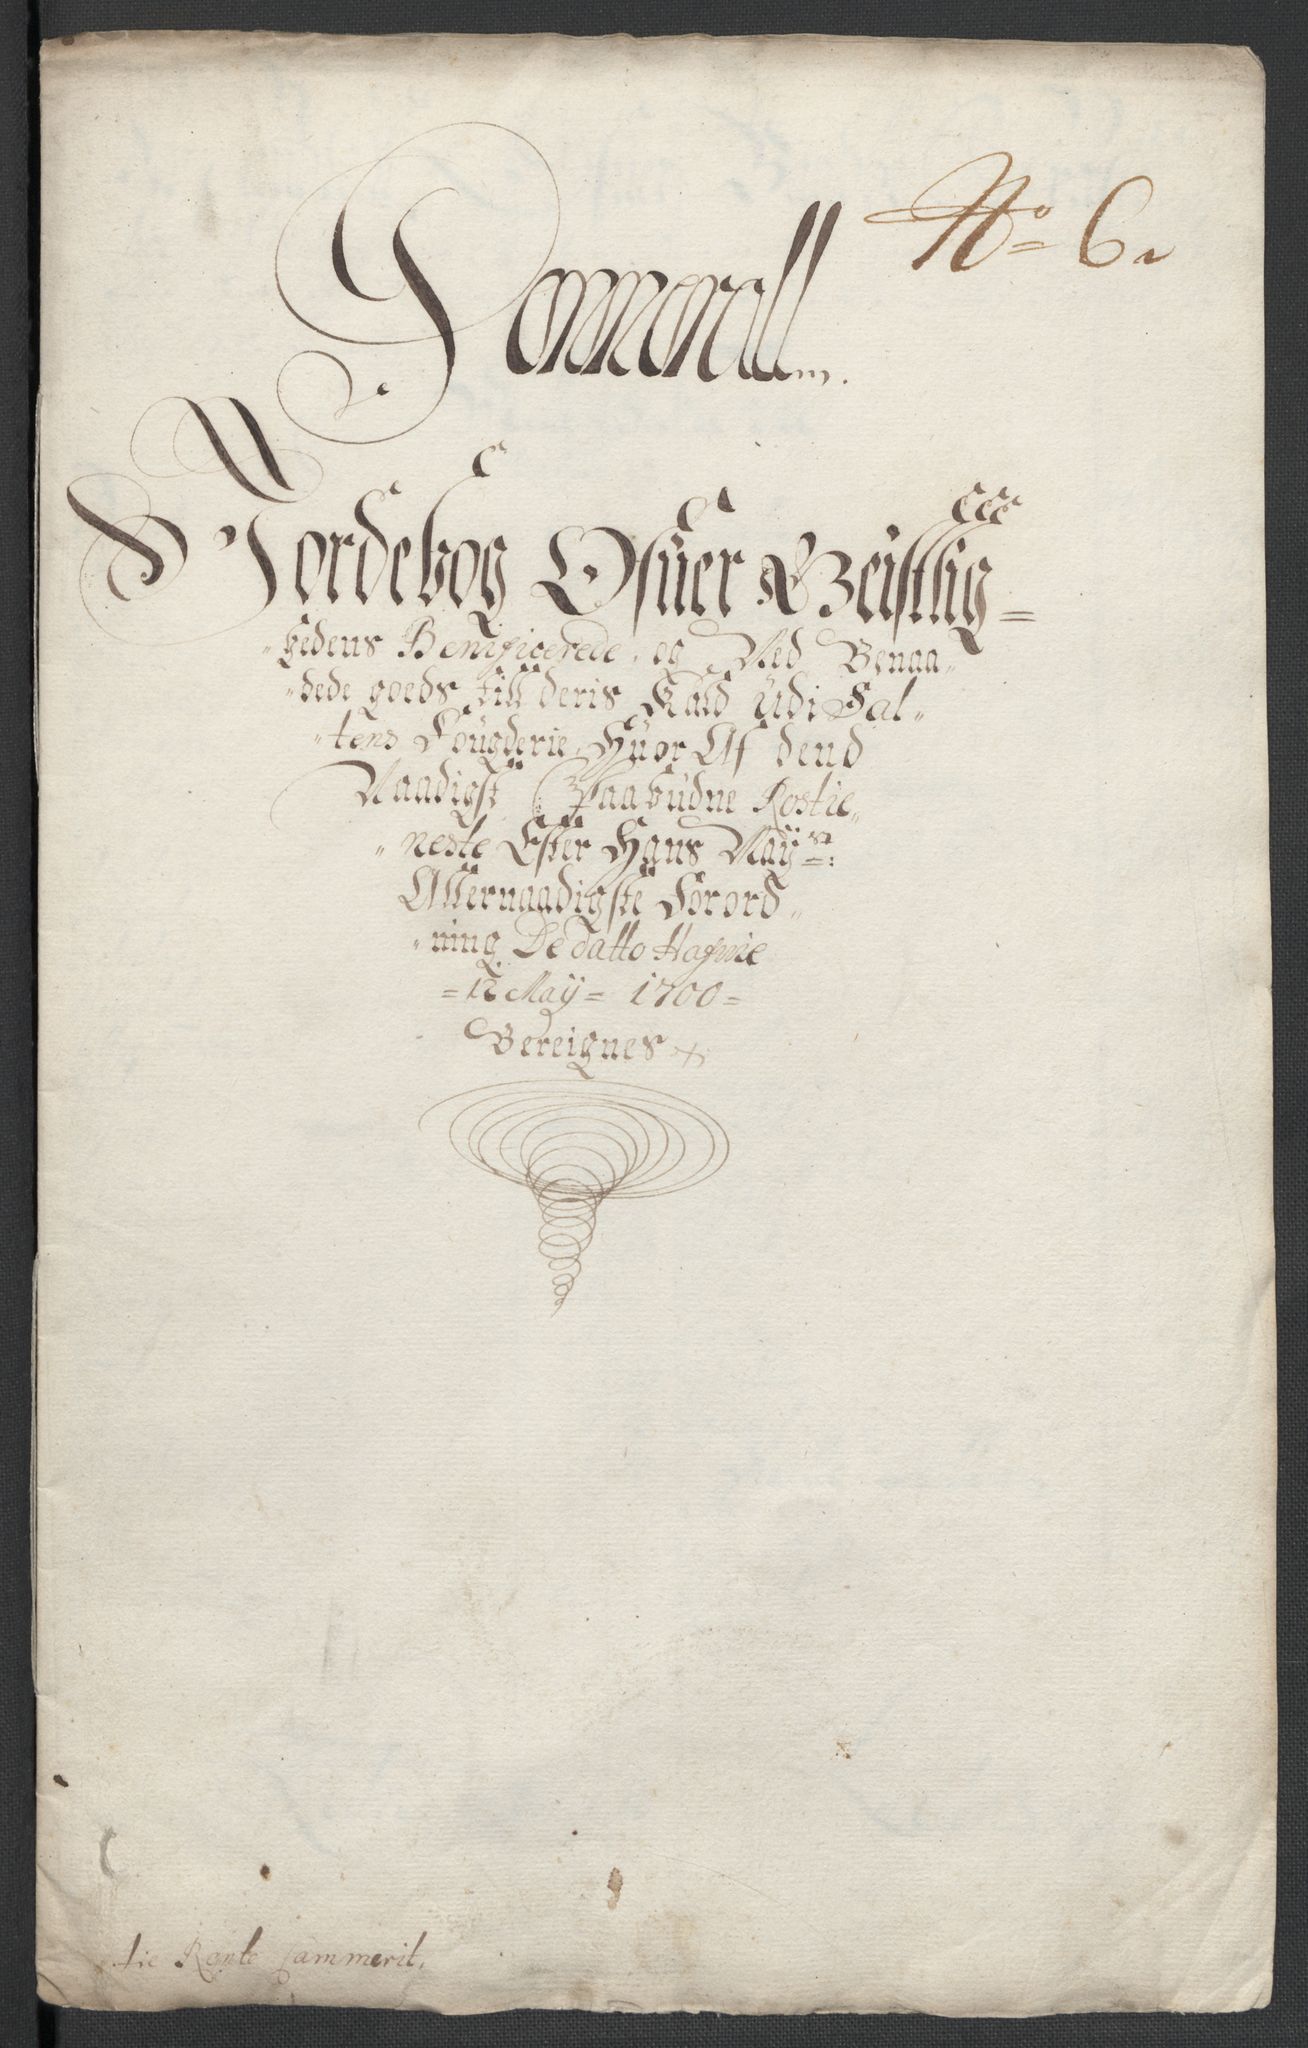 No 6.
General
Jordebog Ofuer Geistlig=
hedens Beneficerede, og Med Benaa-
dede goeds till deris Kald udi Sal-
tens Fougderie, Huor Af dend
Naadigst Paabudne Rostie-
neste Efter Hans Mayst:
Allernaadigste Forord-
ning De datto Hafnie
=12 May= 1700=
Bereignes
tie Rente Cammerit.